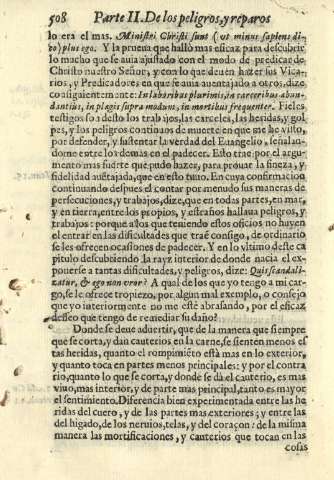 508 Parte II. De los peligros, y reparos
lo era el mas. Ministri Christi sunt (ut minus sapiens di-
co) plus ego. Y la prueva que hallò mas eficaz para descubrir
lo mucho que se avia ajustado con el modo de predicar de
Christo nuestro Señor, y con lo que deven hazer sus Vica-
rios, y Predicadores en que se avia aventajado a otros, dize
lo siguiente: In laboribus plurimis, in carceribus abun-
dantius, in plagis supra modum, in mortibus frequenter. Fieles
testigos so a desto los trabajos, las carceles, las heridas, y gol
pes, y los peligros continuos de muerte en que me he visto,
por defender, y sustentar la verdad del Evangelio, señalan-
dome entre los demàs en el padecer. Esto trae por el argu-
mento mas fuerte que pudo hazer, para provar la fineza, y
fidelidad avētajada, que en esto tuvo. En cuya confirmacion
continuando despues el contar por menudo sus maneras de
persecuciones, y trabajos, dize, que en todas partes, en mar,
y en tierra, entre los propios, y estraños hallava peligros, y
trabajos: porque a los que teniendo estos oficios no huyen
el entrar en las dificultades que traē consigo, de ordinario
se les ofrecen ocasiones de padecer. Y en lo vltimo deste ca
pitulo descubriendo la rayz interior de donde nacia el ex-
ponerse a tantas dificultades, y peligros, dize: Quis scandali-
zatur, & ego non vror? A qual de los que yo tengo a mi car-
go, se le ofrece tropiezo, por algun mal exemplo, o consejo
que yo interiormente no me estè abrasando, por el eficaz
desseo que tengo de remediar su daño?
Donde se deve advertir, que de la manera que siempre
que se corta, y dan cauterios en la carne, se sienten menos es
tas heridas, quanto el rompimiēto està mas en lo exterior,
y quanto toca en partes menos principales: y por el contra
rio, quanto lo que se corta, y donde se dà el cauterio, es mas
vivo, mas interior, y de parte mas principal, tanto es mayor
el sentimiento. Diferencia bien experimentada entre las he
ridas del cuero, y de las partes mas exteriores; y entre las
del higado, de los nervios, telas, y del coraçon: de la misma
manera las mortificaciones, y cauterios que tocan en las
cosas